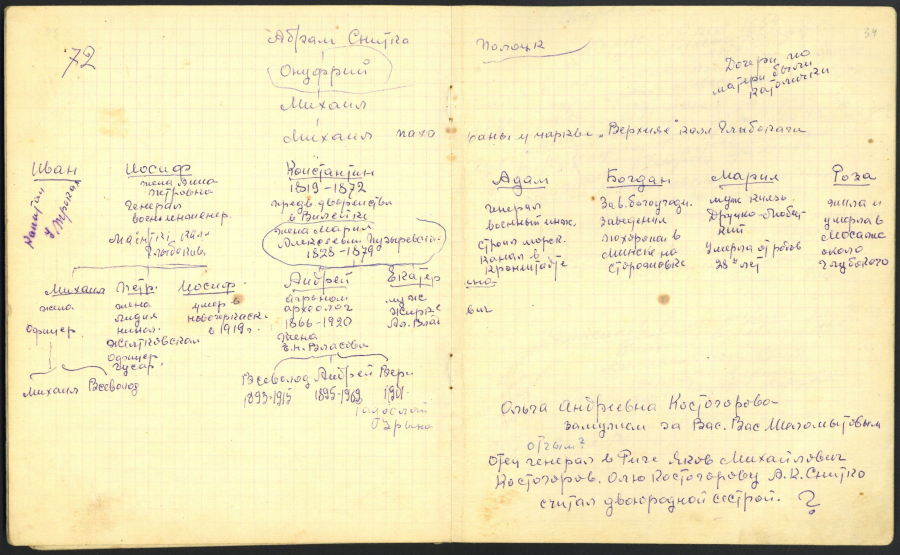 '72
Абрам Снитко
Онуфрий
Михаил
Михаил похо
Полоцк
34
Дочери по
матери были
католички
роны у церкви „Верхнее" возле Глыбокаги
Иван
Капитан
Иосиф
жена Анна
Петровна
генерал
воен. инженер.
Константин
1819–1872
предв. дворянства
в Вилейке
жена Мария
Алексеевна Пузыревск.
1828–1879
Адам
генерал
военный инж.
строил морск.
канал в
Кронштадте
Богдан
Зав. богоугодн.
заведения
похоронен в
Минске на
сторожовке
Мария
муж князь
Друцко-Любец
кий
умерла от родов
28 лет
Роза
жила и
умерла в
Мосарже
около
Глубокого
Михаил
жена
офицер
Петр.
жена
Лидия
никол.
Житковская
офицер
гусар.
Иосиф
умер в
Новочеркасске
в 1919 г.
Андрей
агроном
археолог
1866–1920
жена
Е.Н. Власова
Екатер
муж
Жирке
Ал. Вла
на
вич
Михаил Всеволод
Всеволод Андрей Вера
1893–1915 1895–1969 1901–
Ольга Андреевна Костогорова
замужем за Вас. Вас Шеломытовым
отчым?
отец генерал в Риге Яков Михайлович
Костогоров. Олю Костогорову А.К. Снитко
считал двоюродной сестрой. ?